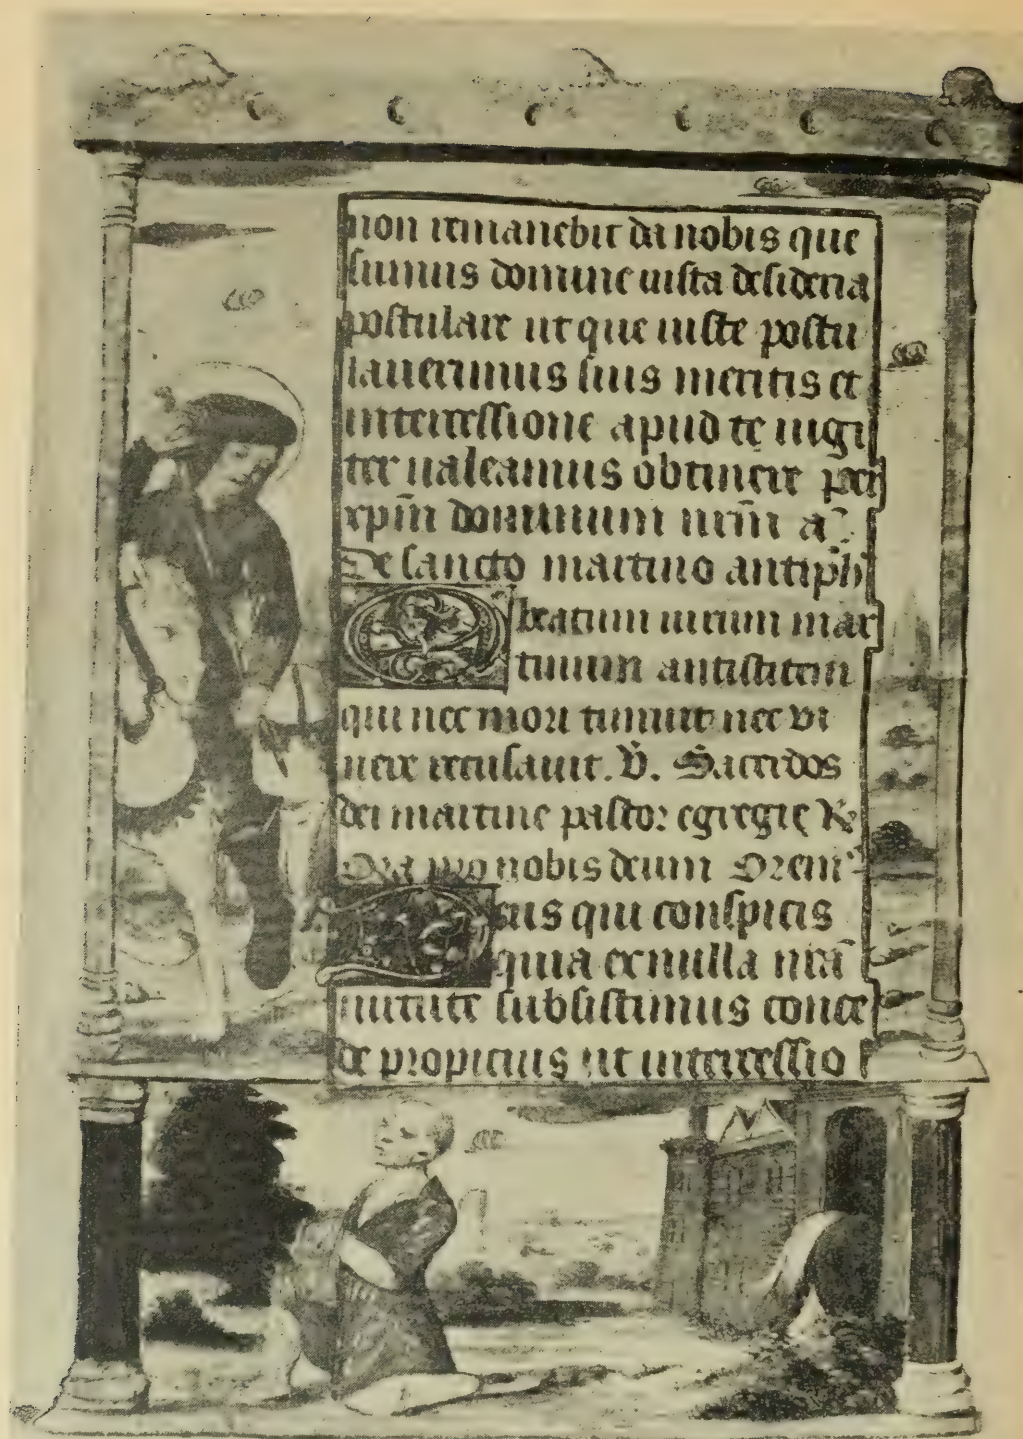 non remanebit da nobis que
sumus domine iusta desideria
postulare ut que iuste postu
lauerimus suis meritis et
intercessione apud te iugi
ter ualeamus obtinere per
xp̄m dominum nr̄m a
De sancto martino antiph
O beatum uirum mar
tinum antistitem
qui nec mori timuit nec vi
uere recusauit. V̄. Sacerdos
dei martine pastor egregie R
Ora pro nobis deum Orem
Deus qui conspicis
quia ex nulla nr̄a
uirtute subsistimus conce
de propicius ut intercessio